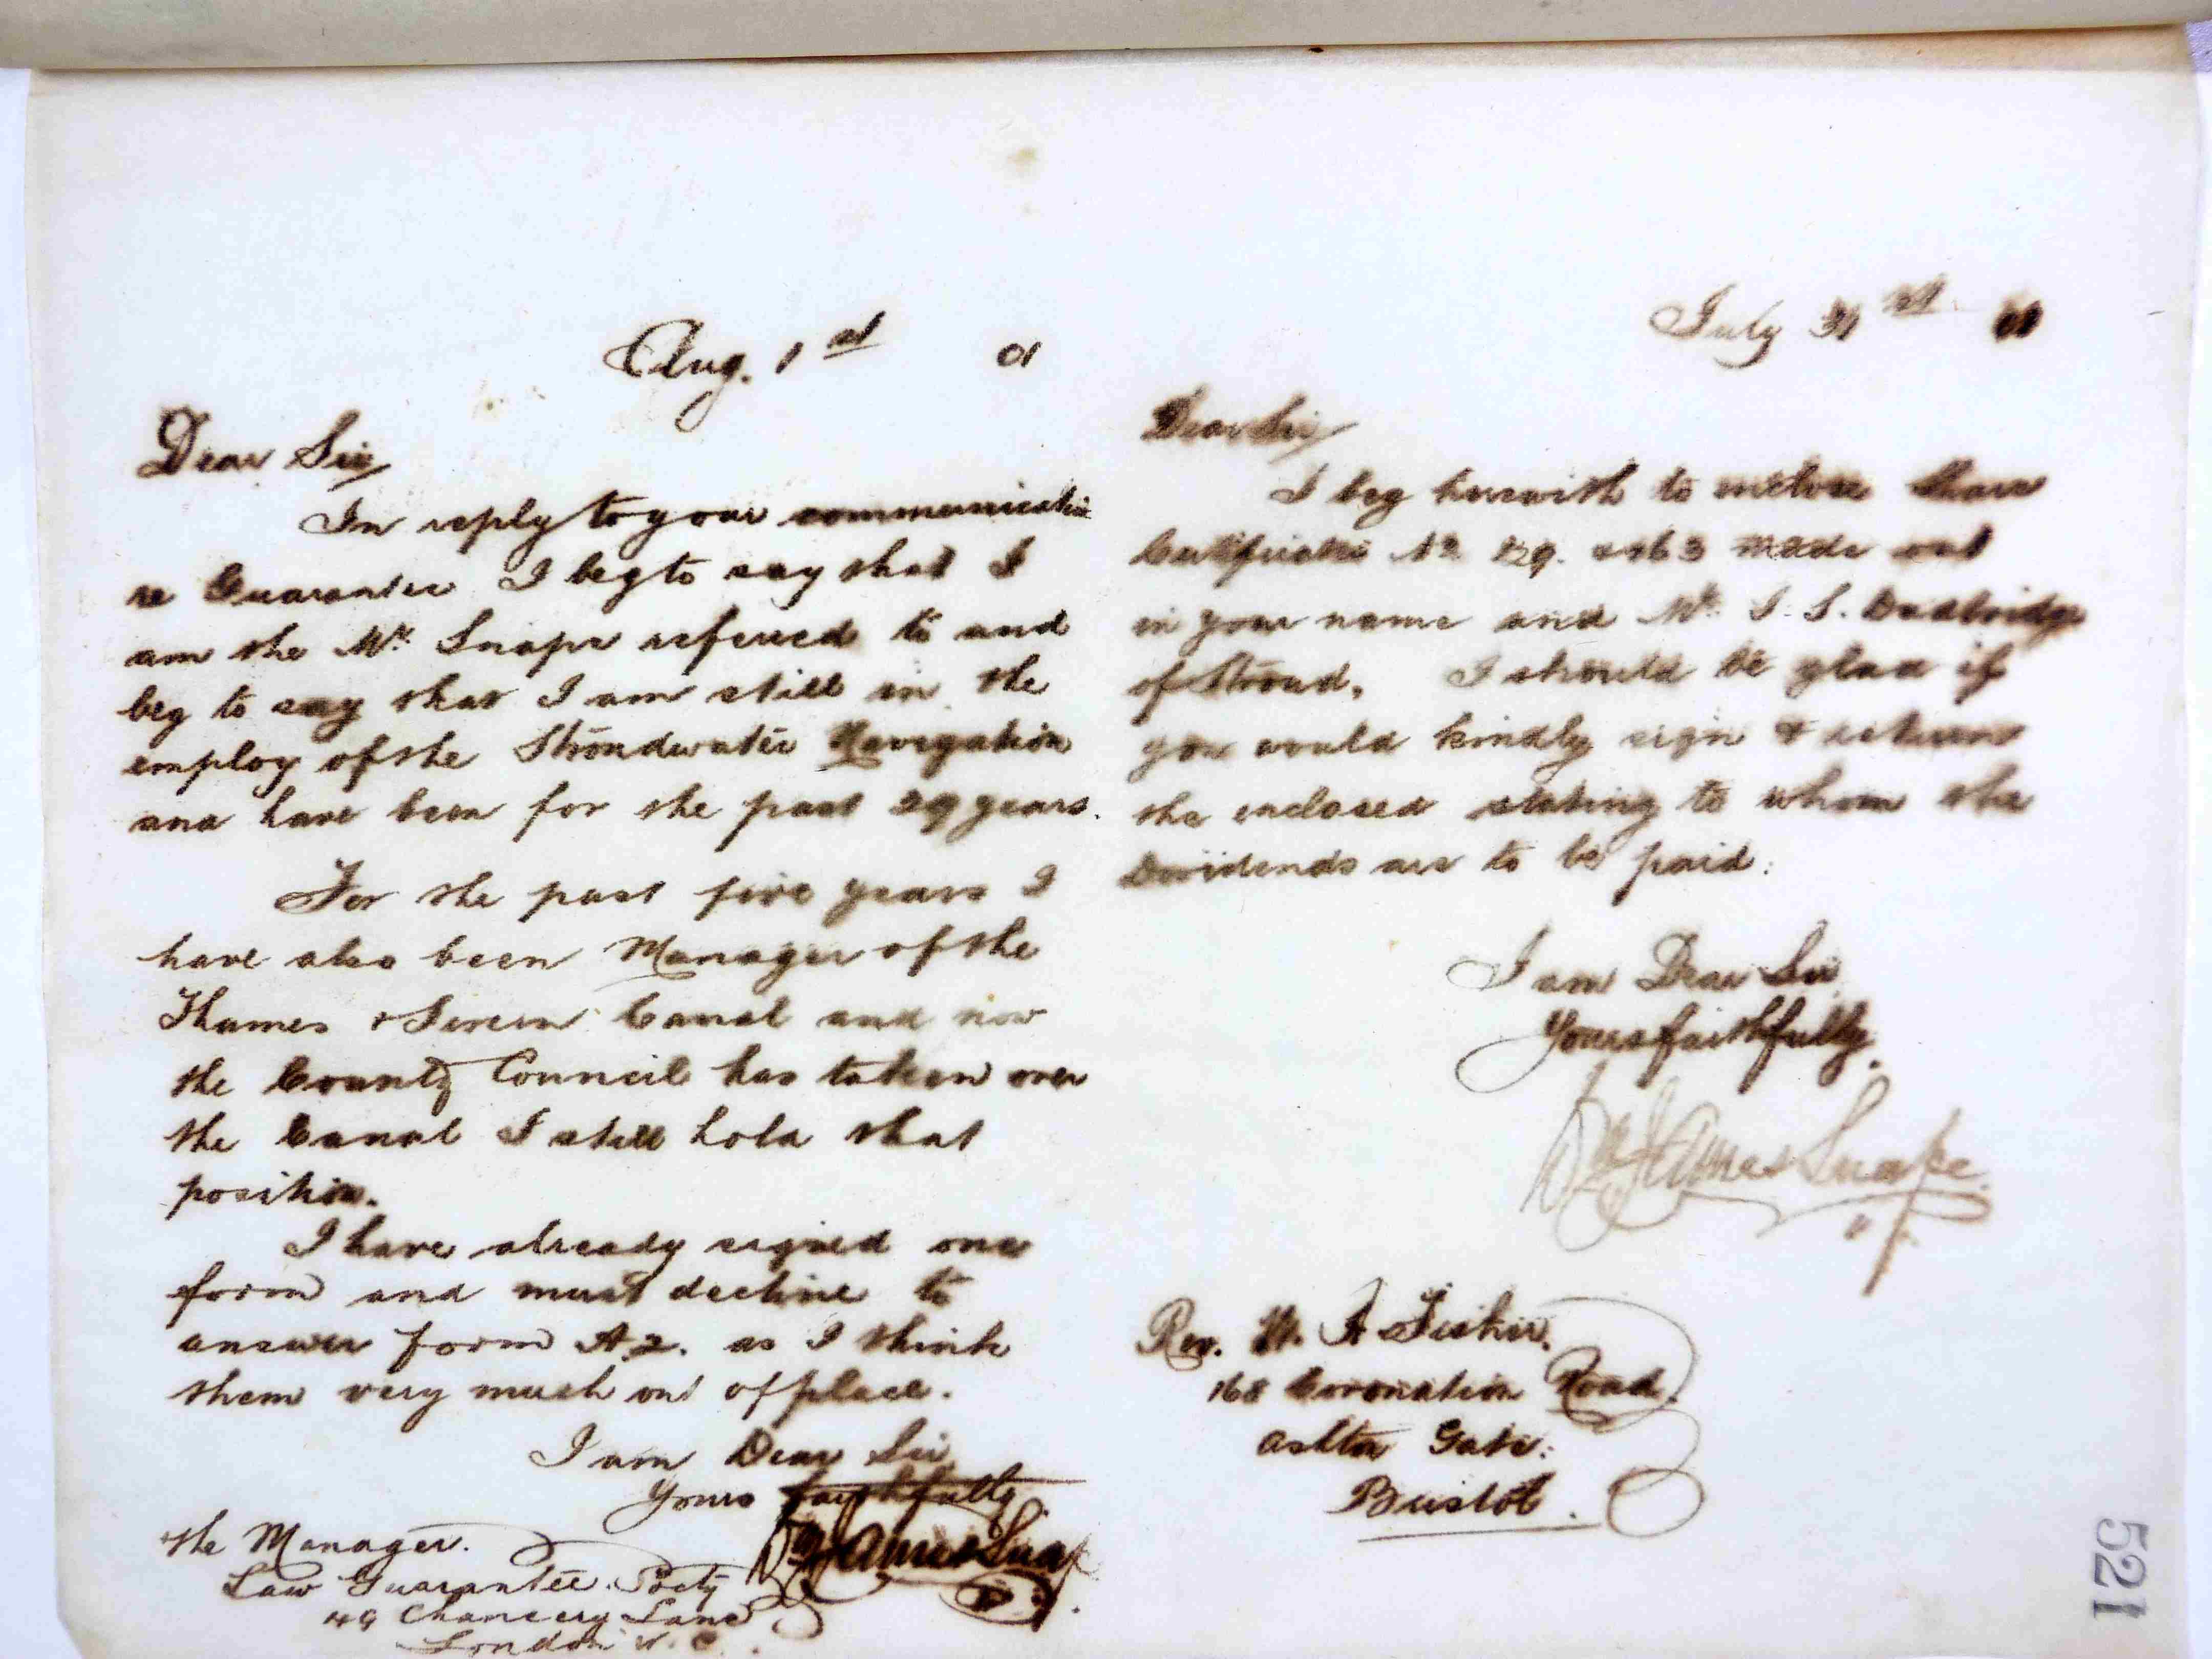 Aug. 1st 01
Dear Sir
In reply to your communicatin
re Guarantee I beg to say that I
am the Mr. Snape refered to and
beg to say that I am still in the
employ of the Stroudwater Navigation
and have been for the past 29 years.
For the past five years I
have also been Manager of the
Thames & Severn Canal and now
the County Council has taken over
the Canal I still hold that
position.
I have already signed one
form and must decline to
answer form A.2. as I think
them very much out of place.
I am Dear Sir
Yours faithfully
Wm James Snape
The Manager.
Law Guarantee Socty
49 Chancery Lane
London W.C.
July 31st 01
Dear Sir
I beg herewith to enclose Share
Certificates No 129. & 163 made out
in your name and Mr. S. S. Dudbridge
of Stroud. I should be glad if
you would kindly sign & return
the enclosed stating to whom the
Dividends are to be paid:
I am Dear Sir
Yours faithfully
Wm James Snape
Rev. W. A. Fisher.
168 Coronation Road
Ashton Gate:
Bristol.
521